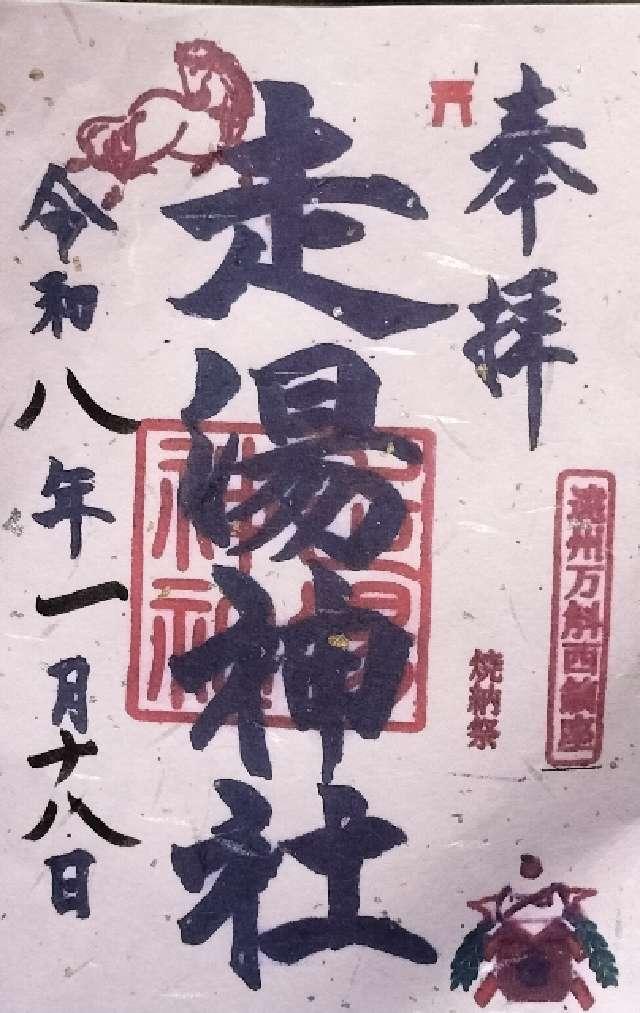 奉拝
遠州万斛西鎮座
焼納祭
走湯神社
走湯神社
令和八年一月十八日